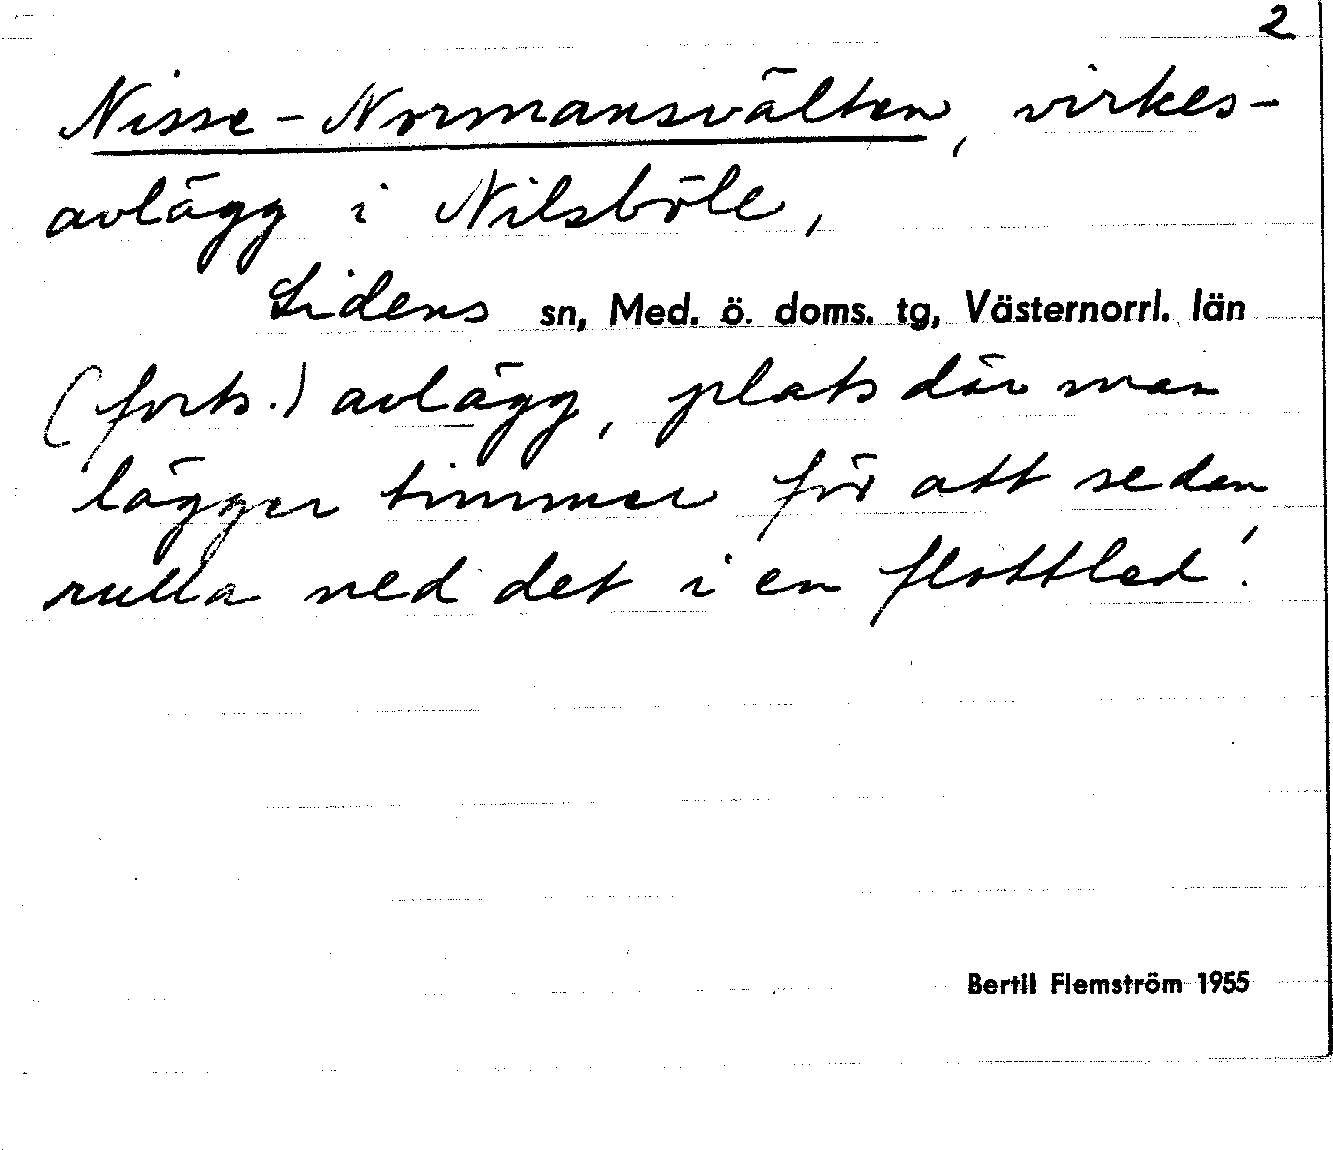 2
Nisse-Normansvälten, virkes-
avlägg i Nilsböle,
Lidens sn, Med. ö. doms. tg, Västernorrl. län
(forts.) avlägg, plats där man
lägger timmer för att sedan
rulla ned det i en flottled'.
Bertil Flemström 1955